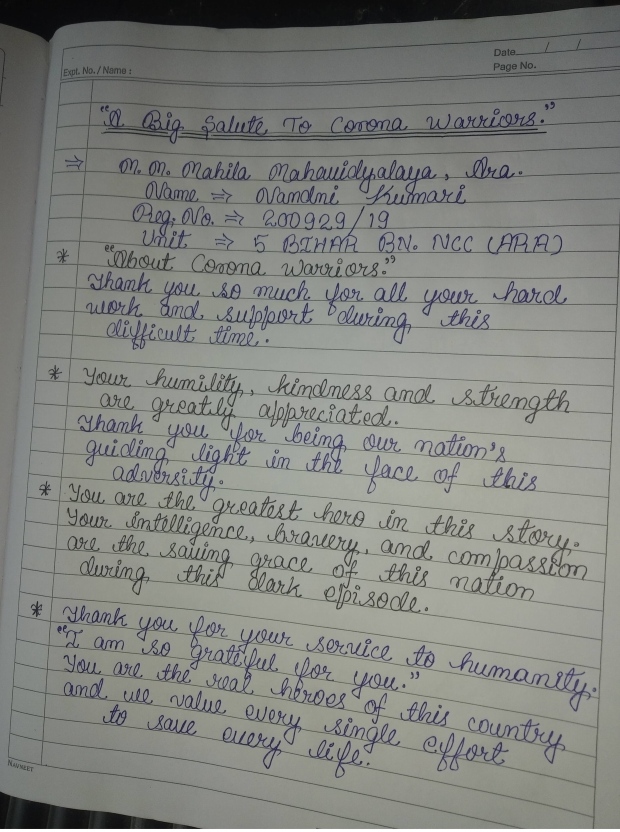 Date / /
Expt. No. / Name :
Page No.
"A Big Salute To Corona Warriors."
⇒ M. M. Mahila Mahavidyalaya, Ara.
Name ⇒ Namdmi Kumari
Reg. No. ⇒ 200929/19
Unit ⇒ 5 BIHAR BN. NCC (ARA)
* "About Corona Warriors."
Thank you so much for all your hard
work and support during this
difficult time.
* Your humility, kindness and strength
are greatly appreciated.
Thank you for being our nation's
guiding light in the face of this
adversity.
* You are the greatest hero in this story.
Your intelligence, bravery, and compassion
are the saving grace of this nation
during this dark episode.
* Thank you for your service to humanity.
"I am so grateful for you."
You are the real heroes of this country
and we value every single effort
to save every life.
NAVNEET